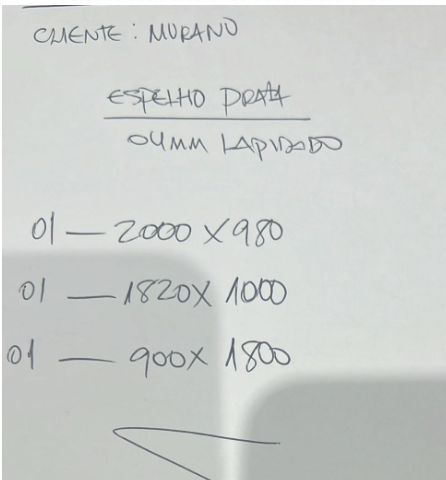 CLIENTE: MURANO
ESPELHO PRATA
04MM LAPIDADO
01 — 2000 X 980
01 — 1820 X 1000
01 — 900 X 1800